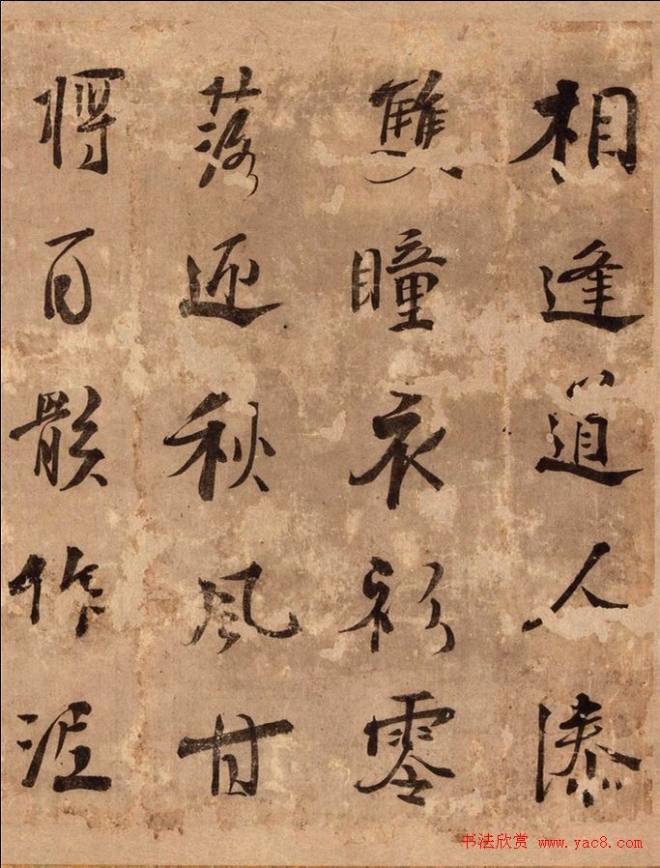 相逢道人漆
雙瞳衣衫零
落迎秋風甘
將百骸作泥
书法欣赏 www.yac8.com